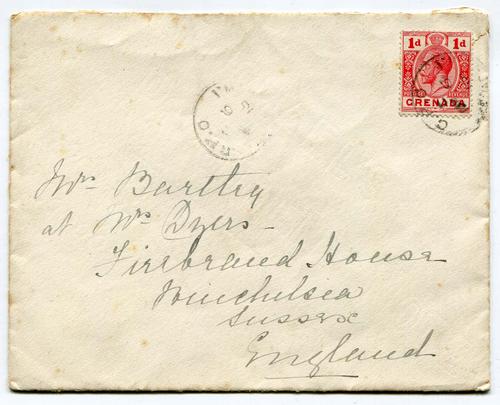 1d 1d
GRENADA
G.P.O
Mrs Bartley
at Mrs Dyers
Firebrand House
Winchelsea
Sussex
England